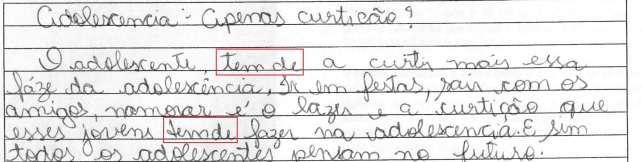 Adolescencia - Apenas curticão?
O adolescente, tem de a curti mais essa
fáze da adolescência, Ir em festas, sair com os
amigos, namorar é o lazer e a curtição que
esses jovens temde fazer na adolescencia. E sim
todos os adolescentes pensam no futuro.